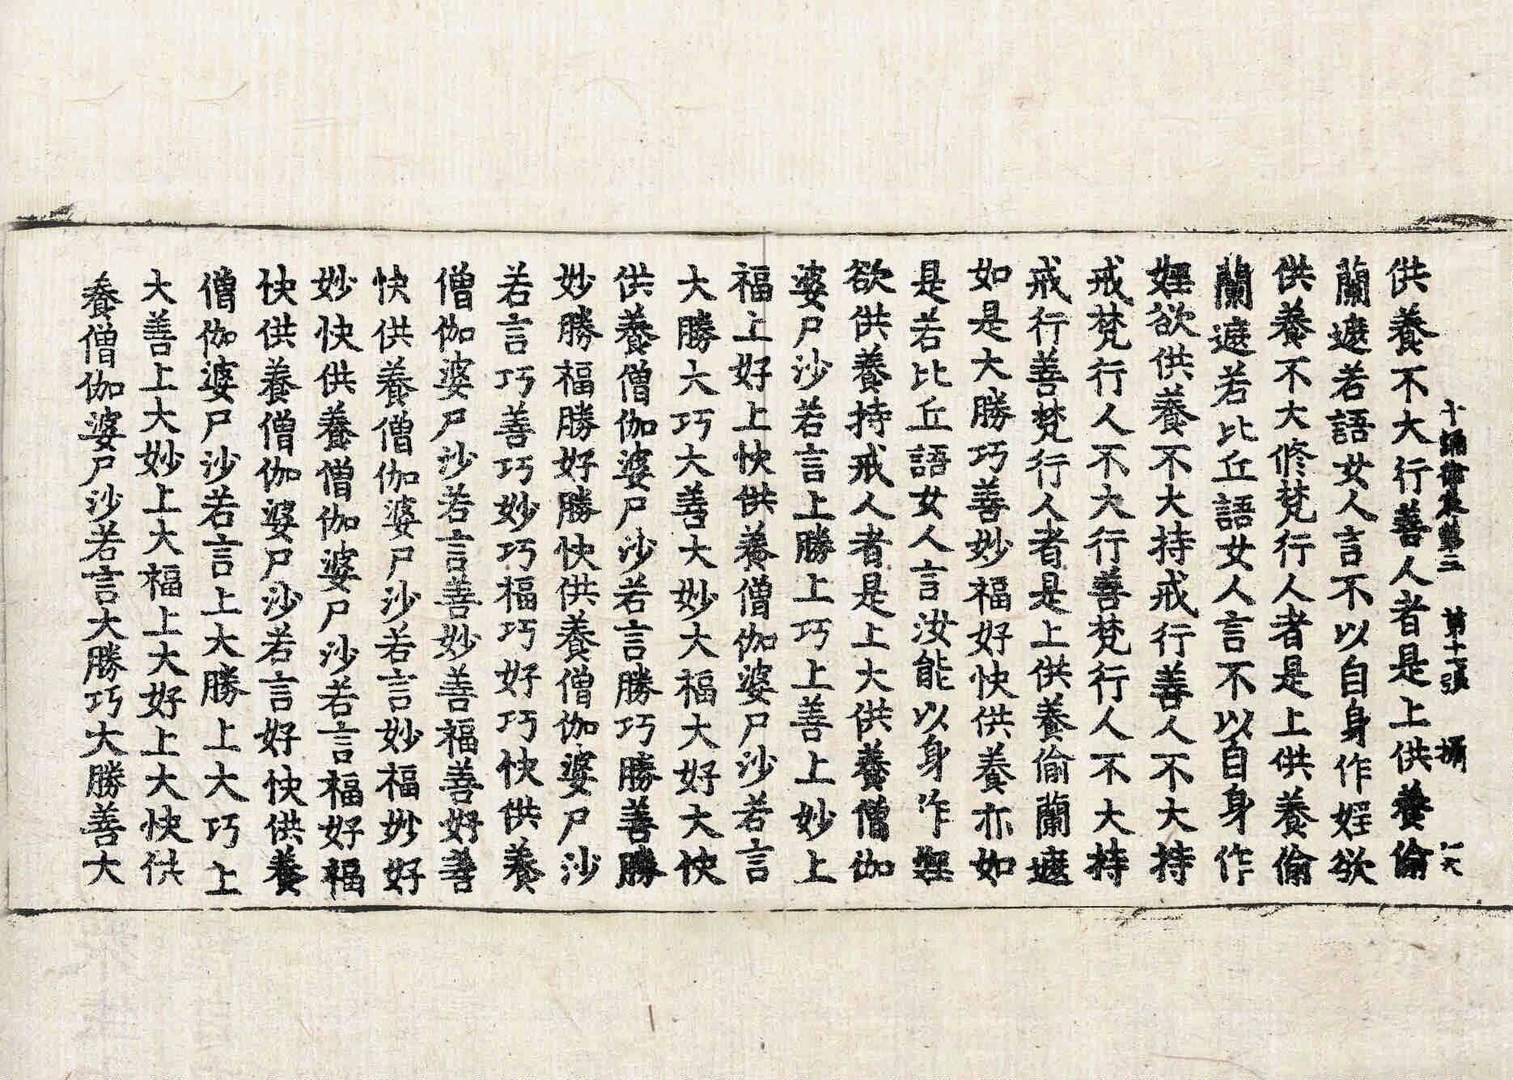 十誦律卷第三　第十二張　攝
供養不大行善人者是上供養偷
蘭遮若語女人言不以自身作婬欲
供養不大修梵行人者是上供養偷
蘭遮若比丘語女人言不以自身作
婬欲供養不大持戒行善人不大持
戒梵行人不大行善梵行人不大持
戒行善梵行人者是上供養偷蘭遮
如是大勝巧善妙福好快供養亦如
是若比丘語女人言汝能以身作婬
欲供養持戒人者是上大供養僧伽
婆尸沙若言上勝上巧上善上妙上
福上好上快供養僧伽婆尸沙若言
大勝大巧大善大妙大福大好大快
供養僧伽婆尸沙若言勝巧勝善勝
妙勝福勝好勝快供養僧伽婆尸沙
若言巧善巧妙巧福巧好巧快供養
僧伽婆尸沙若言善妙善福善好善
快供養僧伽婆尸沙若言妙福妙好
妙快供養僧伽婆尸沙若言福好福
快供養僧伽婆尸沙若言好快供養
僧伽婆尸沙若言上大勝上大巧上
大善上大妙上大福上大好上大快供
養僧伽婆尸沙若言大勝巧大勝善大